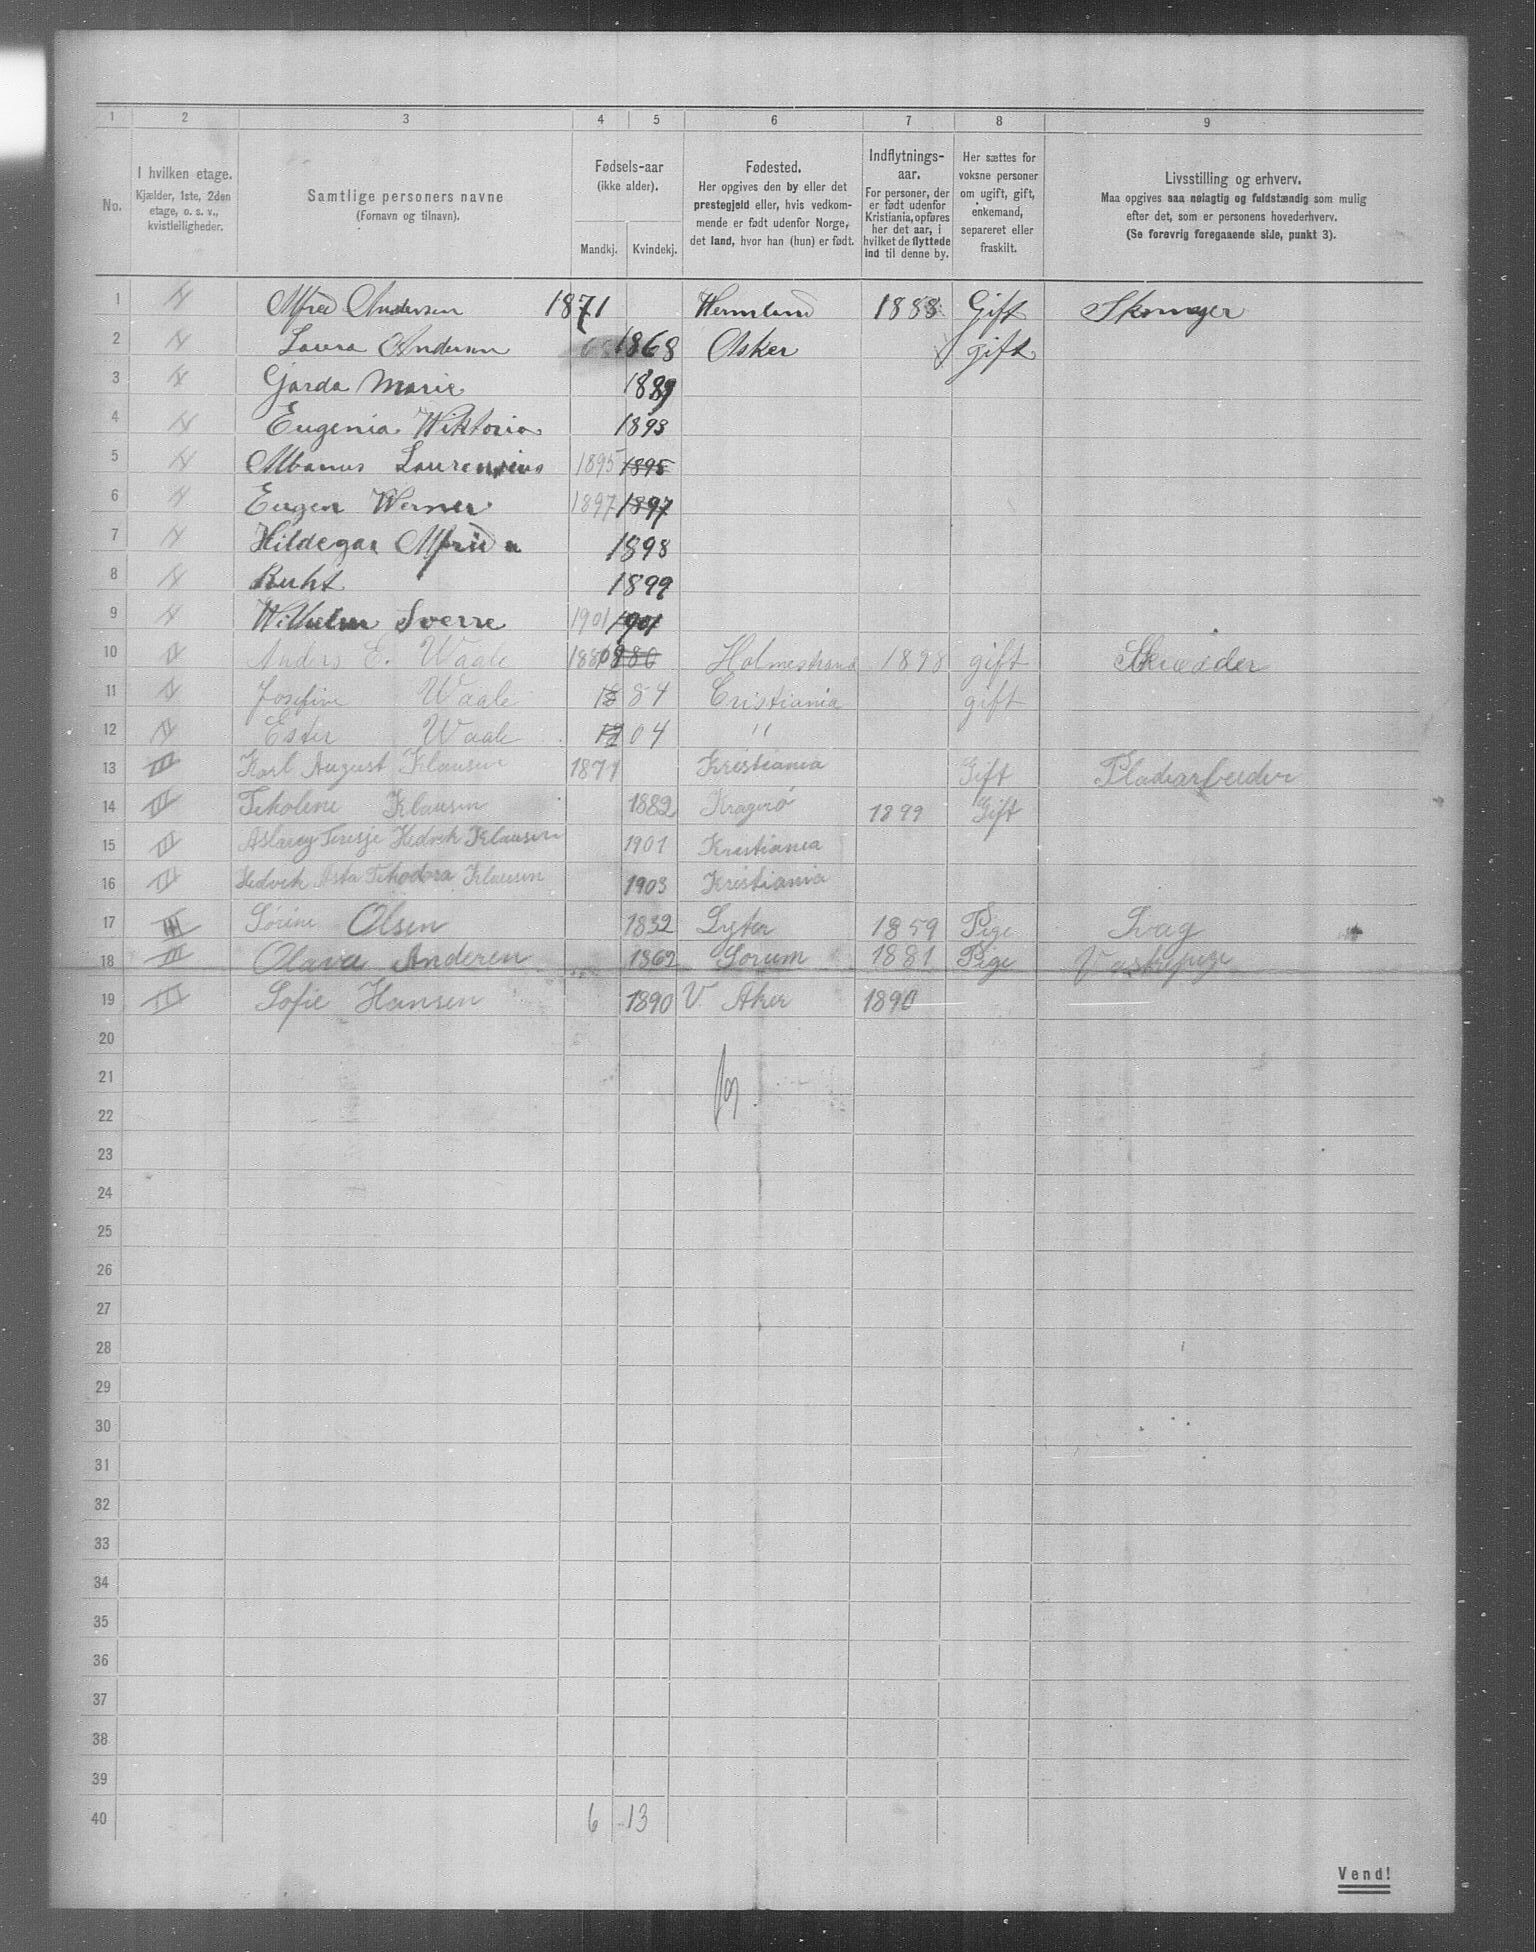 1 2 3 4 5 6 7 8 9
No.
I hvilken etage.
Kjælder, 1ste, 2den
etage, o. s. v.,
kvistleiligheder.
Samtlige personers navne
(Fornavn og tilnavn).
Fødsels-aar
(ikke alder).
Mandkj. Kvindekj.
Fødested.
Her opgives den by eller det
prestegjeld eller, hvis vedkom-
mende er født udenfor Norge,
det land, hvor han (hun) er født.
Indflytnings-
aar.
For personer, der
er født udenfor
Kristiania, opføres
her det aar, i
hvilket de flyttede
ind til denne by.
Her sættes for
voksne personer
om ugift, gift,
enkemand,
separeret eller
fraskilt.
Livsstilling og erhverv.
Maa opgives saa nøiagtig og fuldstændig som mulig
efter det, som er personens hovederhverv.
(Se forøvrig foregaaende side, punkt 3).
1 Alfred Andersen 1871 Wermland 1888 Gift
2 Laura Andersen 68 1868 Asker gift
3 Garda Marie 1889
4 Eugenia Wiktoria 1893
5 Albanus 1895 1895
6 Eugen Werner 1897 1897
7 Hildegar Alfrida 1898
8 Ruht 1899
9 Wilhelm Sverre 1901 1901
10 IV Anders E. Waale 1880 1880 Holmestrand 1898 gift Skrædder
11 IV Josefine Waale 18 84 Cristiania gift
12 IV Ester Waale 19 04 "
13 III Karl August Klausen 1871 Kristiania Gift Pladiarbeider
14 III Tekolene Klausen 1882 Kragerö 1899 Gift
15 III Teresje Hedvik Klausen 1901 Kristiania
16 Hedvik Asta Tekodora Klausen 1903 Kristiania
17 III Sørine Olsen 1832 1859 Pige Svag
18 III Olava Anderen 1862 Sorum 1881 Pige Vaskepige
19 III Sofie Hansen 1890 V. Aker 1890
20
21
22
23
24
25
26
27
28
29
30
31
32
33
34
35
36
37
38
39
40 6 13
Vend!